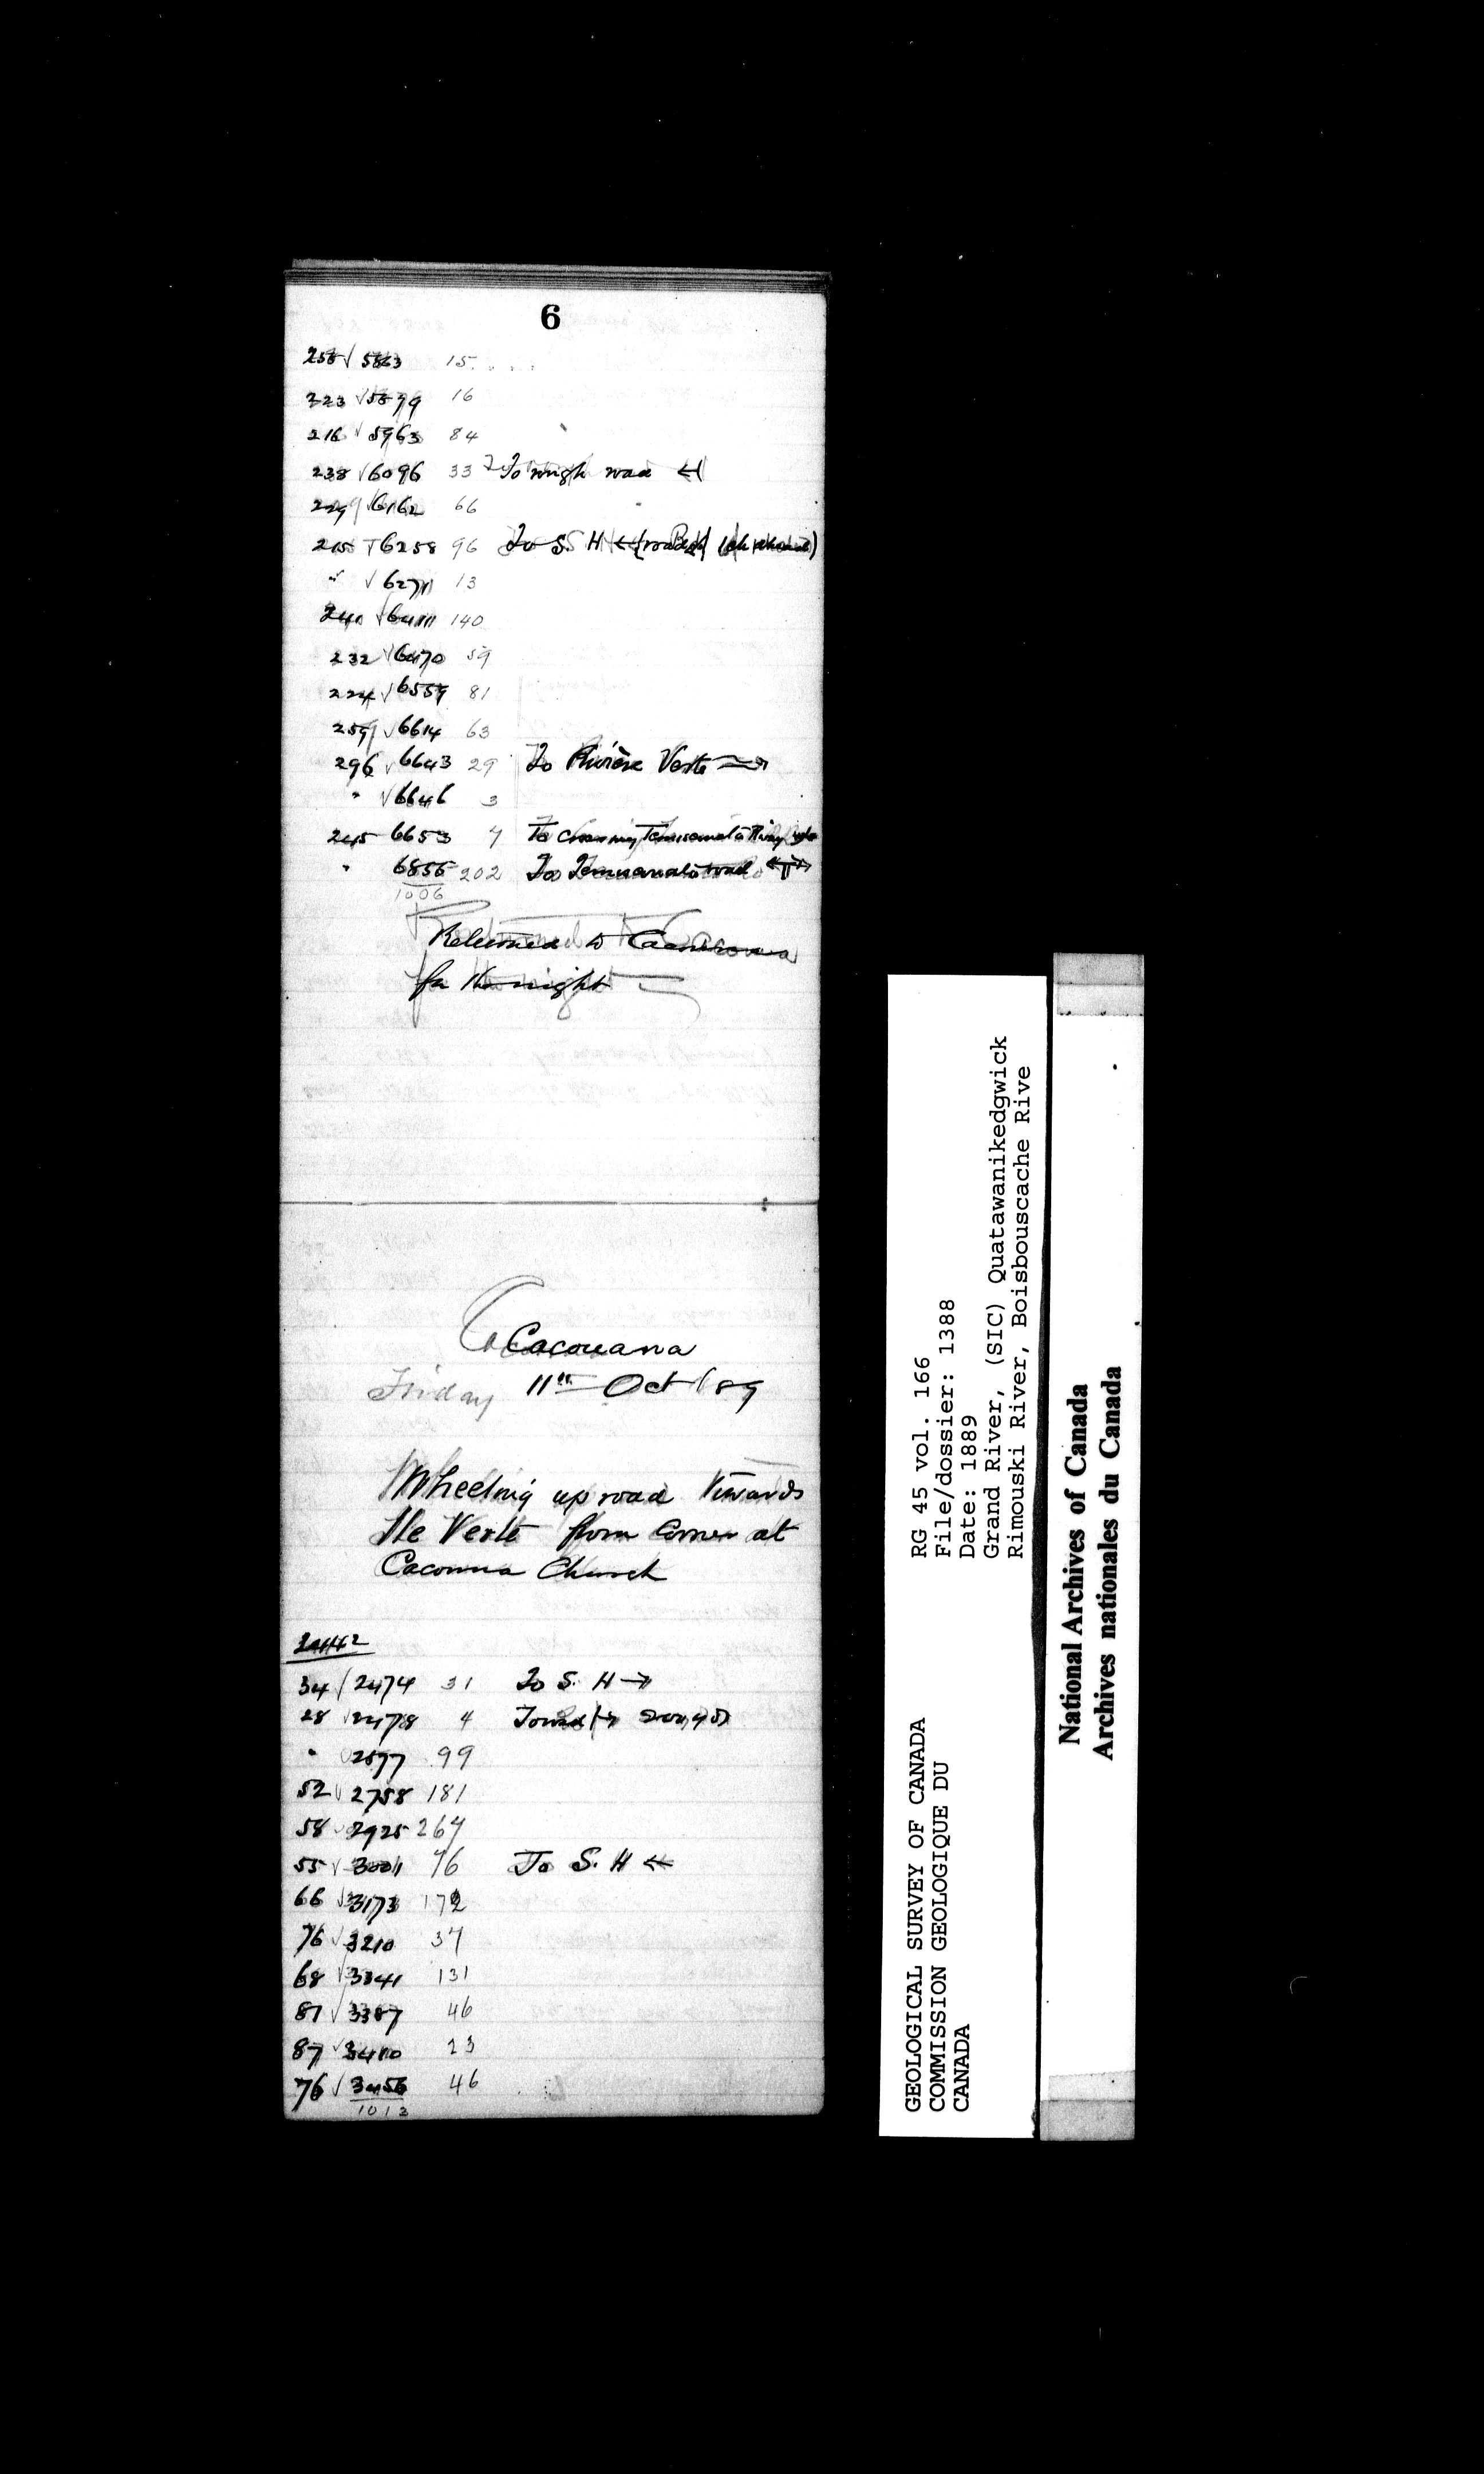 6
258 √ 5863 15
323 √ 5879 16
216 √ 5963 84
238 √ 6096 33 To rough road ←
229 √ 6162 66
215 6258 96 To S. H ←
" √ 6271 13
241 √ 6411 140
232 √ 6470 59
224 √ 6559 81
259 √ 6614 63
296 √ 6643 29 To Rivière Verte →
" √ 6646 3
245 6653 7 To crossing Temiscouata Rway
" 6855 202 To Temiscouata road
1006
Returned to Cacouna
for the night
Cacouana
Friday 11th Oct / 89
Wheeling up road towards
Ile Verte from Corner at
Cacouna Church
2442
34 / 2474 31 To S. H →
28 √ 2478 4 To road →
" 2577 99
52 √ 2758 181
58 2925 267
55 √ 3001 76 To S. H ←
66 √ 3173 172
76 √ 3210 37
68 √ 3341 131
81 √ 3387 46
87 √ 3410 23
76 √ 3456 46
1012
GEOLOGICAL SURVEY OF CANADA
COMMISSION GEOLOGIQUE DU
CANADA
RG 45 vol. 166
File/dossier: 1388
Date: 1889
Grand River, (SIC) Quatawanikedgwick
Rimouski River, Boisbouscache Rive
National Archives of Canada
Archives nationales du Canada